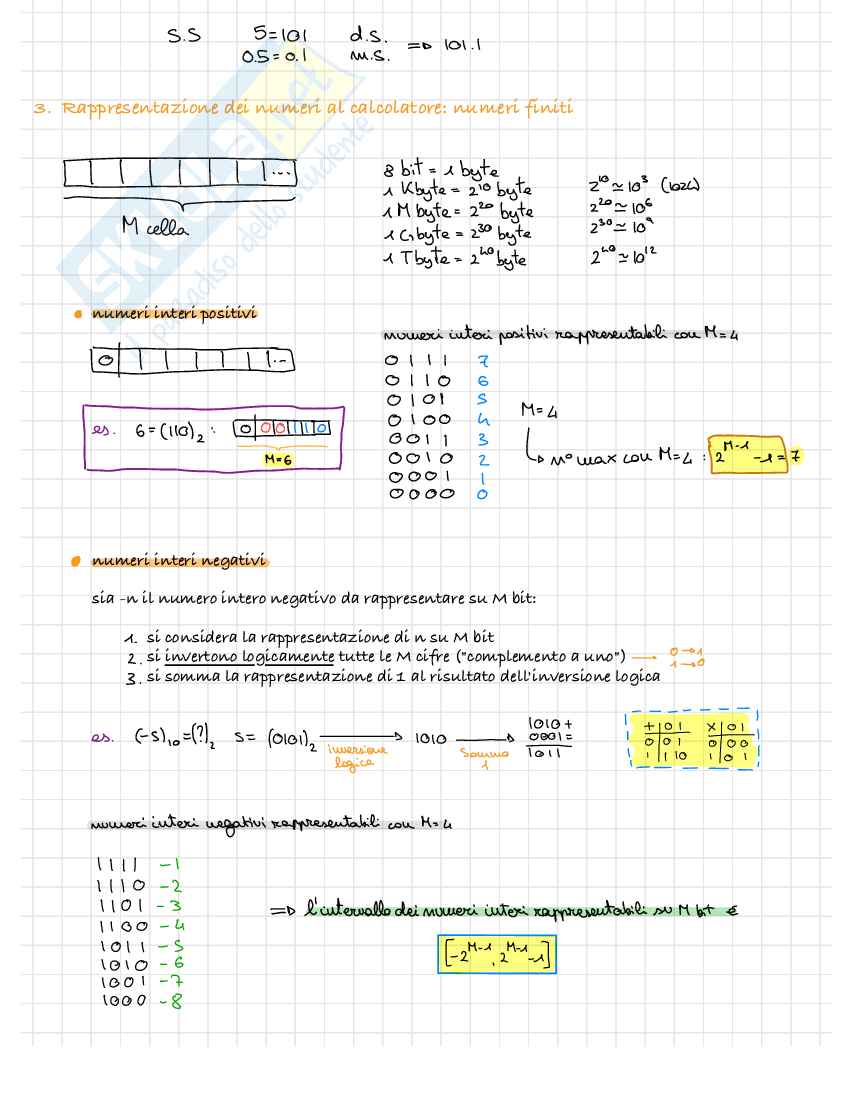 5.5 5=101 d.s. => 101.1
0.5=0.1 m.s.
3. Rappresentazione dei numeri al calcolatore: numeri finiti
...
M cella
8 bit = 1 byte
1 Kbyte = 2^10 byte 2^10 ≃ 10^3 (1024)
1 Mbyte = 2^20 byte 2^20 ≃ 10^6
1 Gbyte = 2^30 byte 2^30 ≃ 10^9
1 Tbyte = 2^40 byte 2^40 ≃ 10^12
SKUOLA.net
il paradiso dello studente
• numeri interi positivi
0 ...
es. 6=(110)₂: 0 0 0 1 1 0
M=6
numeri interi positivi rappresentabili con M=4
0 1 1 1 7
0 1 1 0 6
0 1 0 1 5
0 1 0 0 4
0 0 1 1 3
0 0 1 0 2
0 0 0 1 1
0 0 0 0 0
M=4
n° max con M=4 : 2^(M-1) -1 = 7
• numeri interi negativi
sia -n il numero intero negativo da rappresentare su M bit:
1. si considera la rappresentazione di n su M bit
2. si invertono logicamente tutte le M cifre ("complemento a uno") → 0→1
1→0
3. si somma la rappresentazione di 1 al risultato dell'inversione logica
es. (-5)₁₀=(?)₂ 5= (0101)₂ → 1010 → 1010+
0001=
1011
inversione logica
somma 1
+ | 0 1
0 | 0 1
1 | 1 10
X | 0 1
0 | 0 0
1 | 0 1
numeri interi negativi rappresentabili con M=4
1111 -1
1110 -2
1101 -3
1100 -4
1011 -5
1010 -6
1001 -7
1000 -8
=> l'intervallo dei numeri interi rappresentabili su M bit è
[-2^(M-1), 2^(M-1) -1]